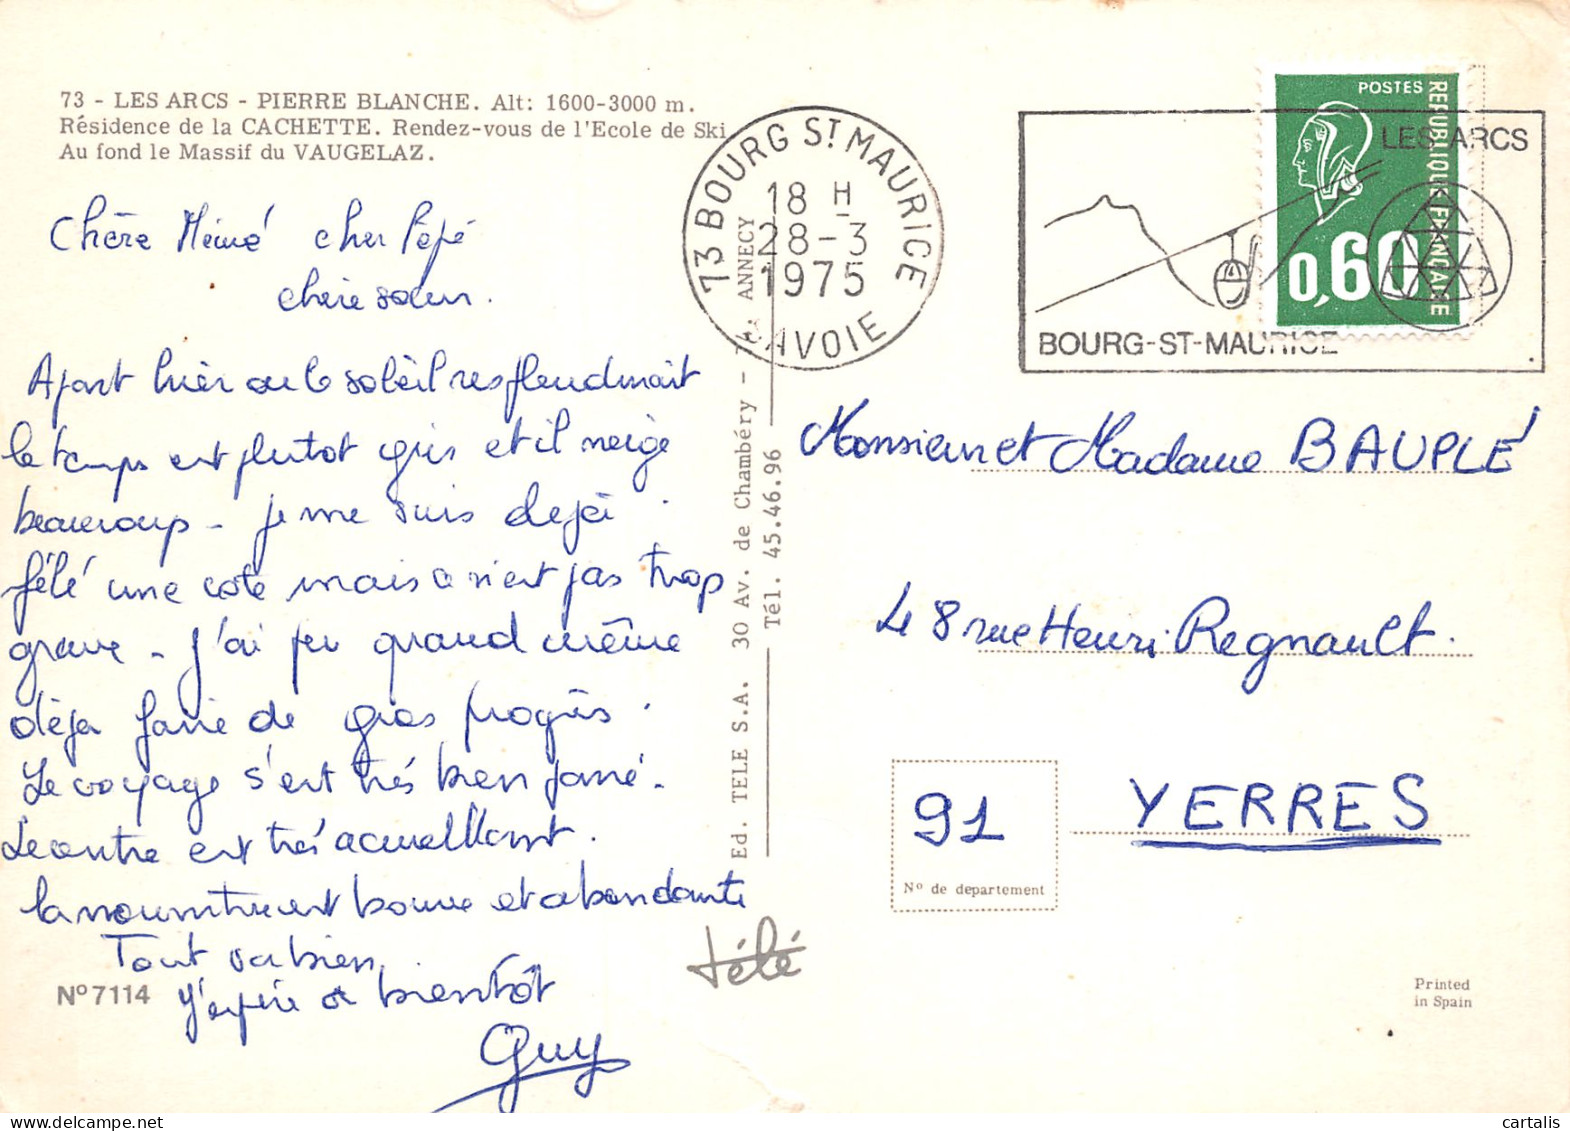 73 - LES ARCS - PIERRE BLANCHE. Alt: 1600-3000 m.
Résidence de la CACHETTE. Rendez-vous de l'Ecole de Ski
Au fond le Massif du VAUGELAZ.
Chère Mémé cher Pépé
chère soeur.
Apart hièr ou le soleil resplendissait
le temps est plutot gris et il neige
beaucoup - Je me suis dejà
félé une cote mais ce n'est pas trop
grave - J'ai pu quand même
dèja faire de gros progrès.
Le voyage s'est trés bien passé.
Le centre est trés acueillant.
la nourriture est bonne et abondante
Tout va bien
J'espère a bientôt
Guy
N° 7114
télé
Ed. TELE S.A. 30 Av. de Chambéry - ANNECY
Tél. 45.46.96
73 BOURG ST MAURICE
18 H
28-3
1975
SAVOIE
LES ARCS
BOURG-ST-MAURICE
POSTES
REPUBLIQUE FRANÇAISE
0,60
Monsieur et Madame BAUPLÉ
48 rue Henri Regnault.
91 YERRES
N° de departement
Printed
in Spain
cartalis